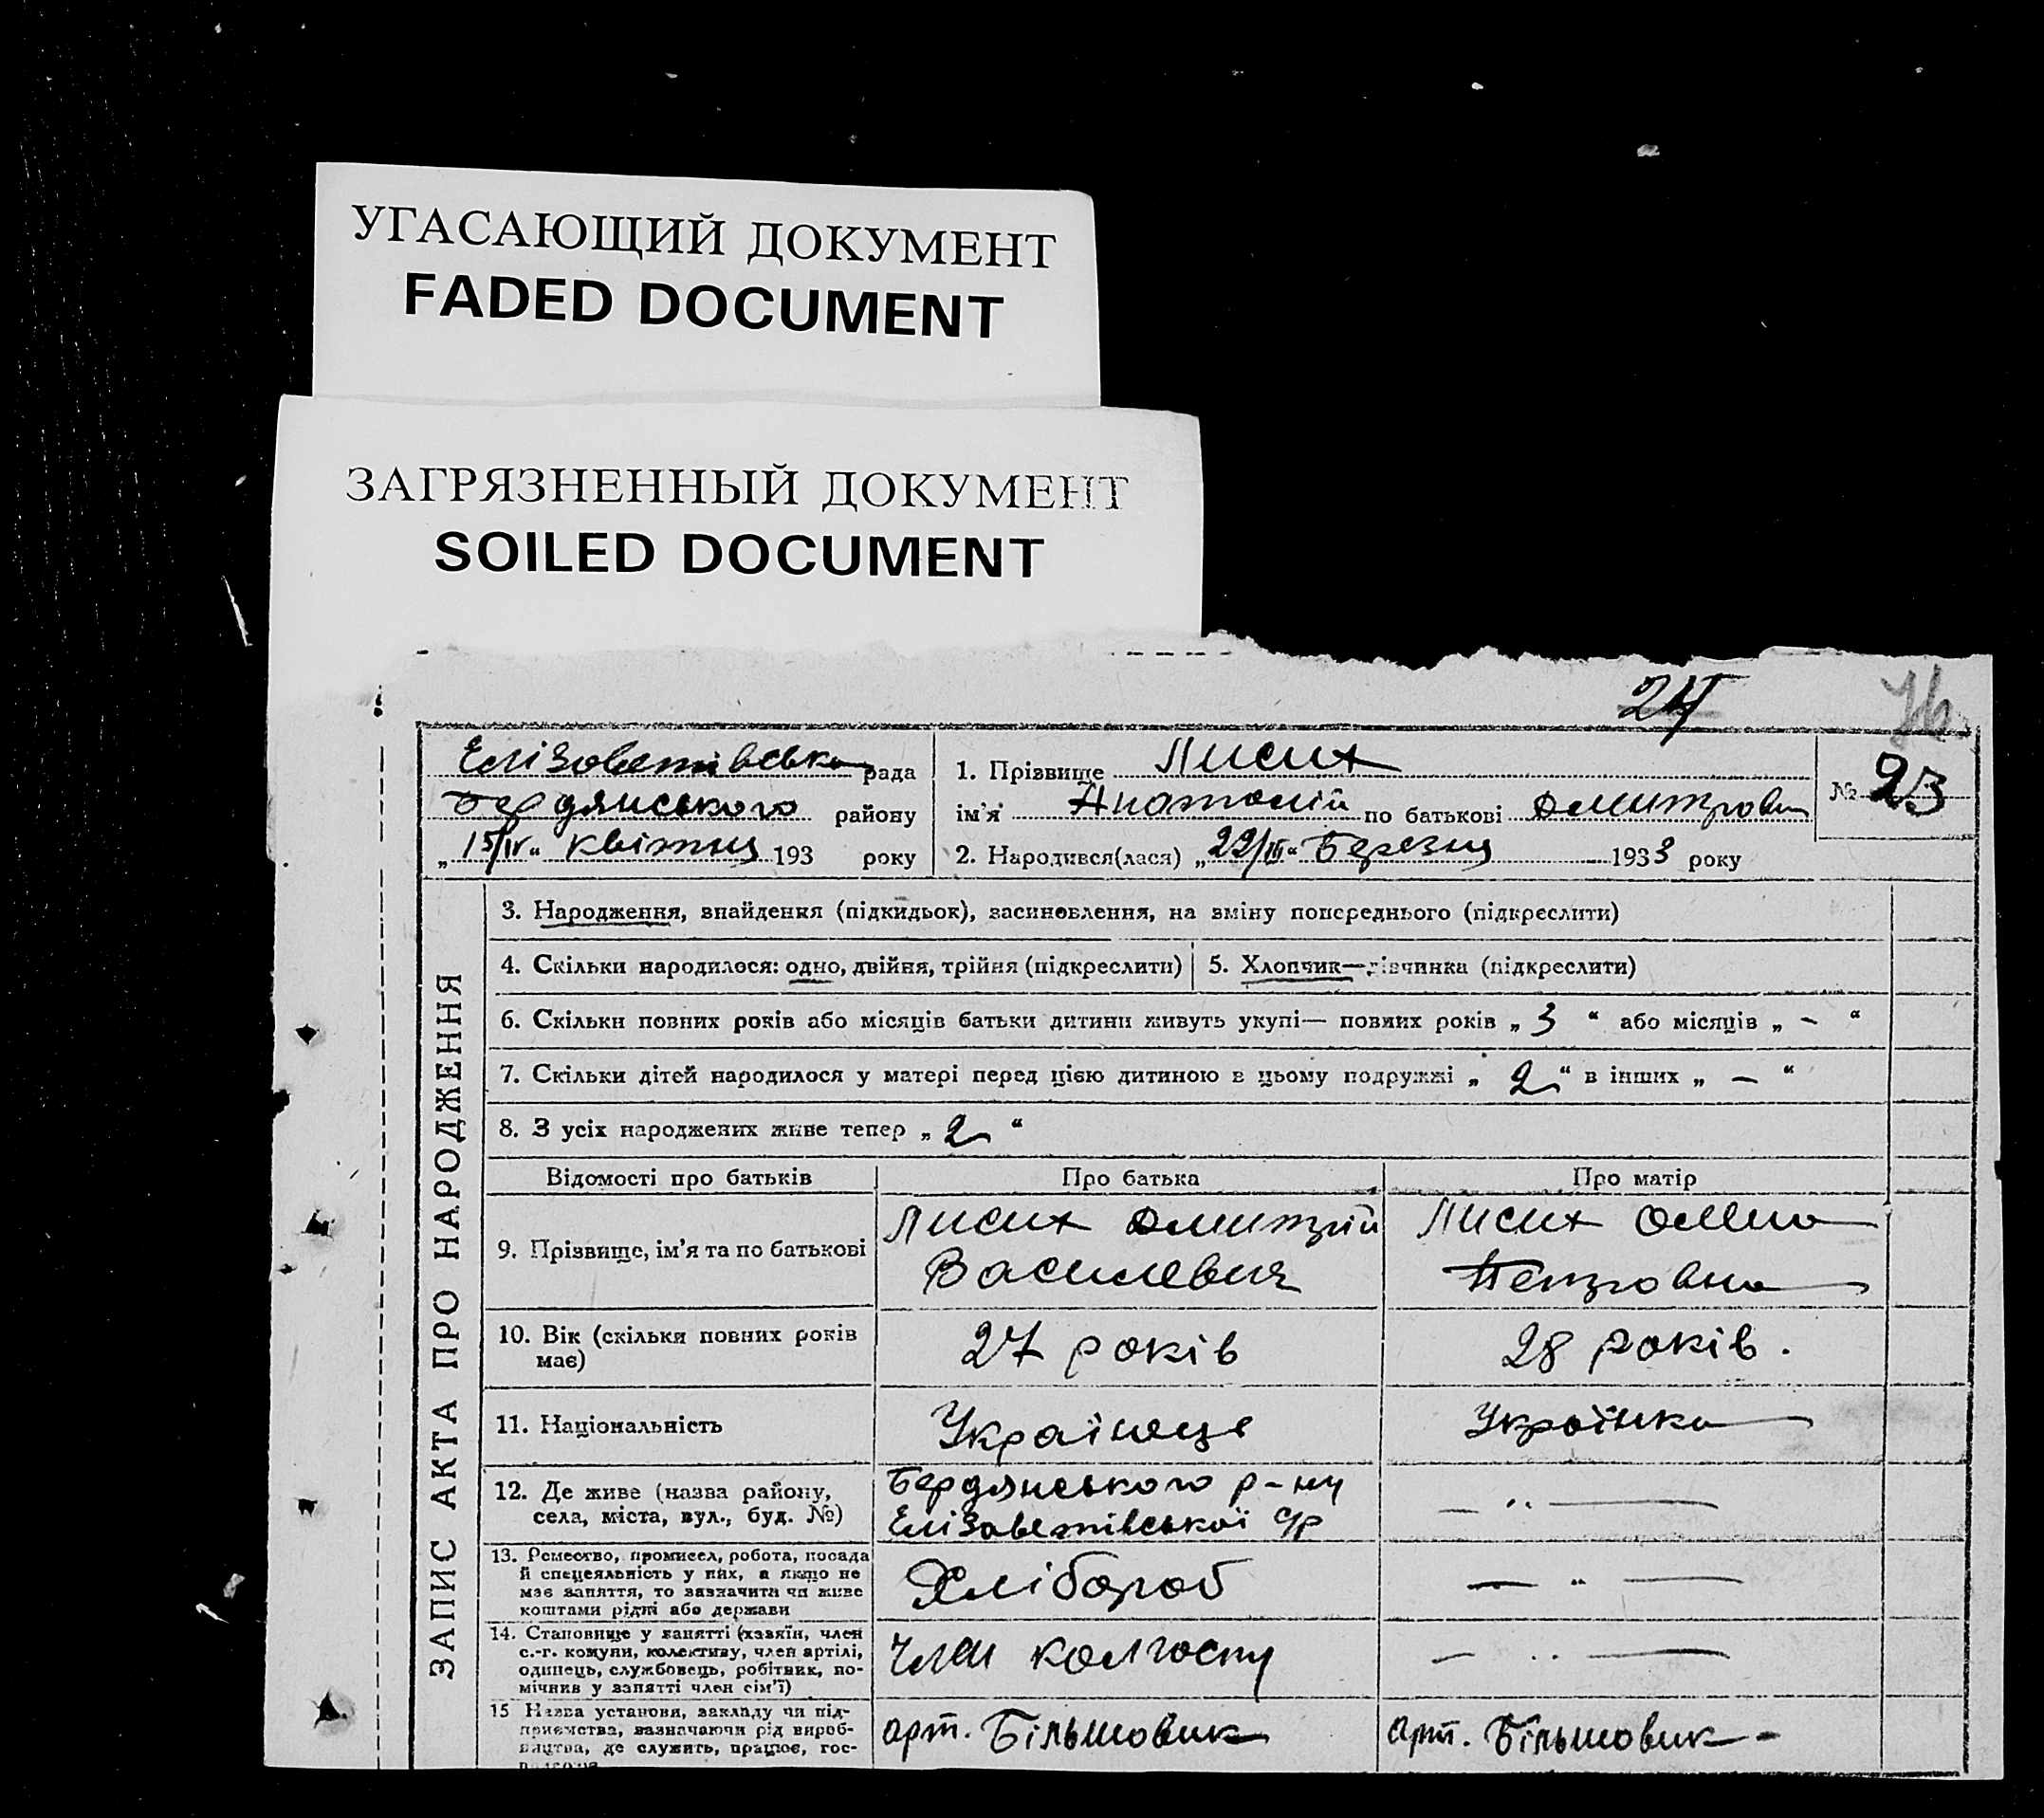 УГАСАЮЩИЙ ДОКУМЕНТ
FADED DOCUMENT
ЗАГРЯЗНЕННЫЙ ДОКУМЕНТ
SOILED DOCUMENT
24
ЗАПИС АКТА ПРО НАРОДЖЕННЯ
Елізаветівська рада
Бердянського району
„15/IV“ квітня 193 року
1. Прізвище Лисих
ім'я Анатолій по батькові Дмитрович
2. Народився(лася) „22/III“ Березня 1933 року
№ 23
3. Народження, знайдення (підкидьок), засиновлення, на зміну попереднього (підкреслити)
4. Скільки народилося: одно, двійня, трійня (підкреслити)
5. Хлопчик—дівчинка (підкреслити)
6. Скільки повних років або місяців батьки дитини живуть укупі— повних років „ 3 “ або місяців „ – “
7. Скільки дітей народилося у матері перед цією дитиною в цьому подружжі „ 2 “ в інших „ – “
8. З усіх народжених живе тепер „ 2 “
Відомості про батьків Про батька Про матір
9. Прізвище, ім'я та по батькові
Лисих Дмитрій
Василевич
Лисих Олена
Петровна
10. Вік (скільки повних років
має)
27 років
28 років.
11. Національність
Українець
Українка
12. Де живе (назва району,
села, міста, вул., буд. №)
Бердянського р-ну
Елізаветівської с/р
— ·· —
13. Ремество, промисел, робота, посада
й спецеяльність у них, а якщо не
має заняття, то зазначити чи живе
коштами рідні або держави
Хлібороб
— ·· —
14. Становище у занятті (хазяїн, член
с.-г. комуни, колективу, член артілі,
одинець, службовець, робітник, по-
мічник у занятті член сім'ї)
Член колгоспу
— ·· —
15 Назва установи, закладу чи під-
приємства, зазначаючи рід вироб-
ництва, де служить, працює, гос-
арт. Більшовик
арт. Більшовик –